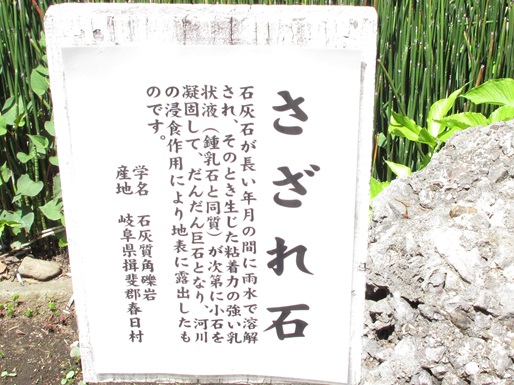 さざれ石
石灰石が長い年月の間に雨水で溶解
され、そのとき生じた粘着力の強い乳
状液（鍾乳石と同質）が次第に小石を
凝固して、だんだん巨石となり、河川
の浸食作用により地表に露出したも
のです。
学名　石灰質角礫岩
産地　岐阜県揖斐郡春日村